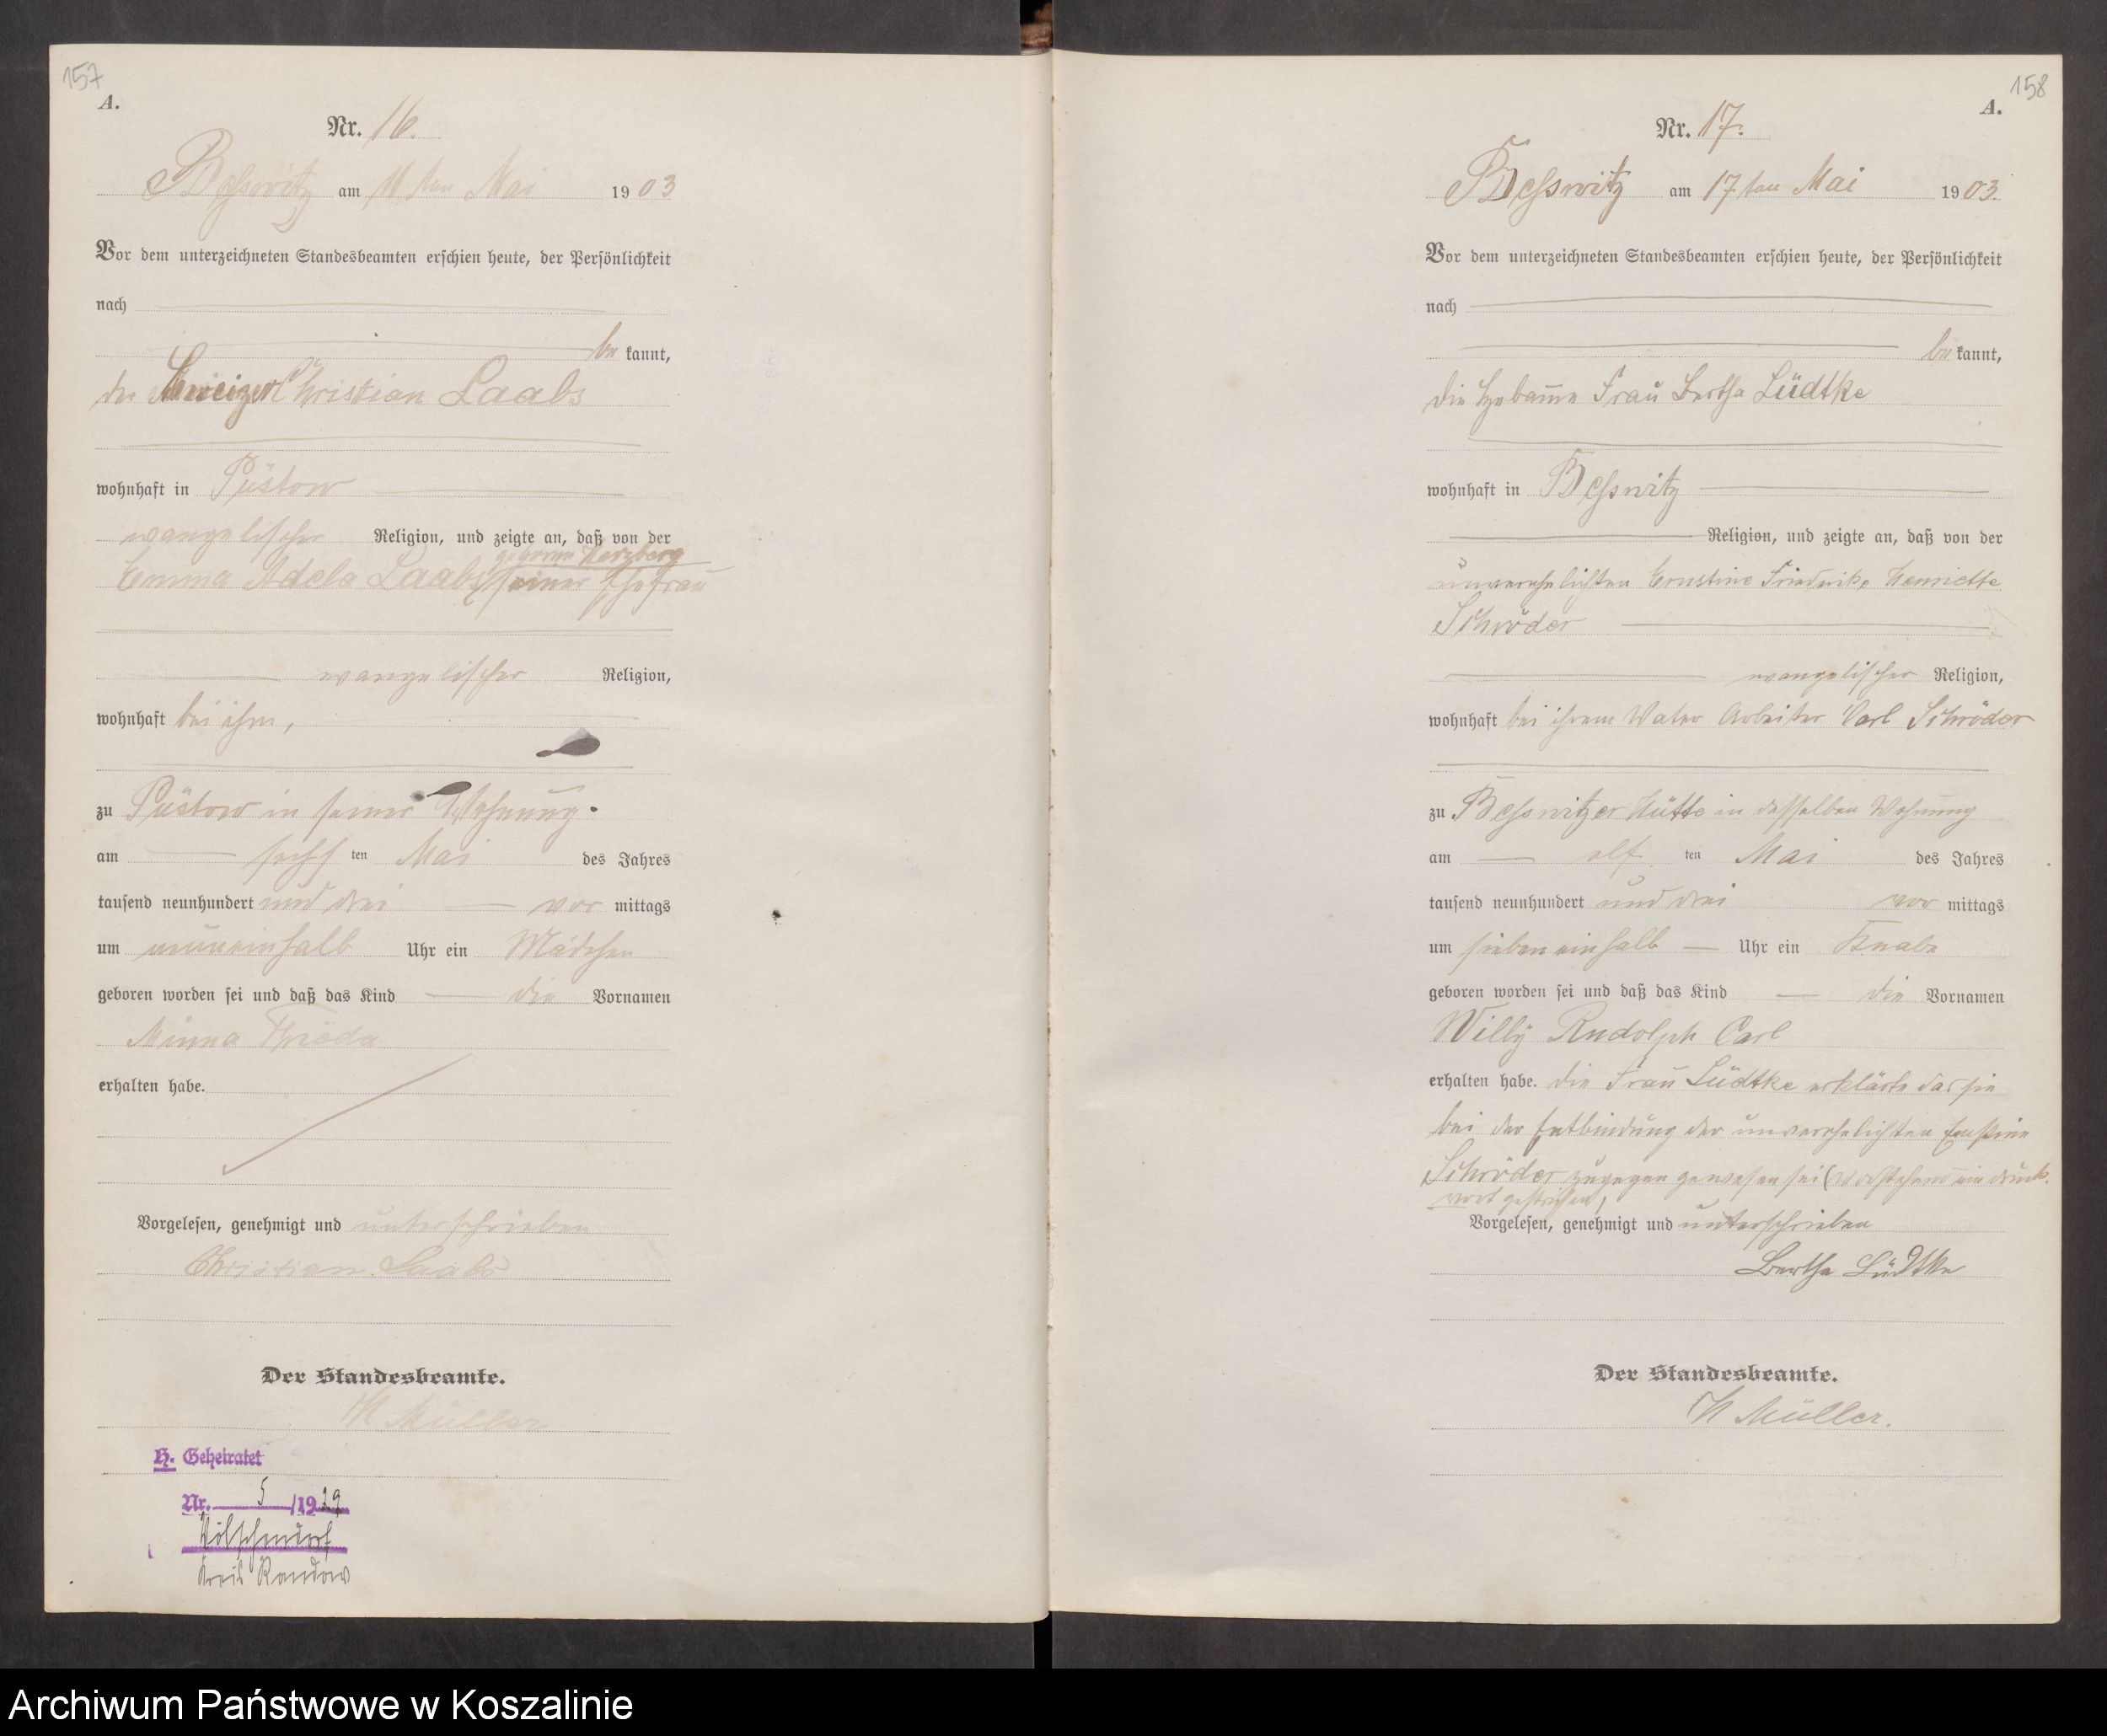 157
A.
Nr. 16.
Beßwitz am 11ten Mai 1903
Vor dem unterzeichneten Standesbeamten erschien heute, der Persönlichkeit
nach
bekannt,
der Schweizer Christian Laabs
wohnhaft in Püstow
evangelischer Religion, und zeigte an, daß von der
geborene Herzberg
Emma Adela Laabs seiner Ehefrau
evangelischer Religion,
wohnhaft bei ihm,
zu Püstow in seiner Wohnung
am sechsten Mai des Jahres
tausend neunhundert und drei vormittags
um neuneinhalb Uhr ein Mädchen
geboren worden sei und daß das Kind die Vornamen
Minna Frieda
erhalten habe.
Vorgelesen, genehmigt und unterschrieben
Christian Laabs
Der Standesbeamte.
Müller
H. Geheiratet
Nr. 5 /1929
Kreis Randow
158
A.
Nr. 17.
Beßwitz am 17ten Mai 1903.
Vor dem unterzeichneten Standesbeamten erschien heute, der Persönlichkeit
nach
bekannt,
die Hebamme Frau Bertha Lüdtke
wohnhaft in Beßwitz
Religion, und zeigte an, daß von der
unverehelichten Ernstine Friederike Henriette
Schröder
evangelischer Religion,
wohnhaft bei ihrem Vater Arbeiter Carl Schröder
zu Beßwitzer Hütte in desselben Wohnung
am elften Mai des Jahres
tausend neunhundert und drei vormittags
um siebeneinhalb Uhr ein Knabe
geboren worden sei und daß das Kind die Vornamen
Willy Rudolph Carl
erhalten habe. die Frau Lüdtke erklärte das sie
bei der Entbindung der unverehelichten Ernstine
Schröder zugegen gewesen sei (Vorstehend ein Druck-
wort gestrichen)
Vorgelesen, genehmigt und unterschrieben
Bertha Lüdtke
Der Standesbeamte.
Müller.
Archiwum Państwowe w Koszalinie